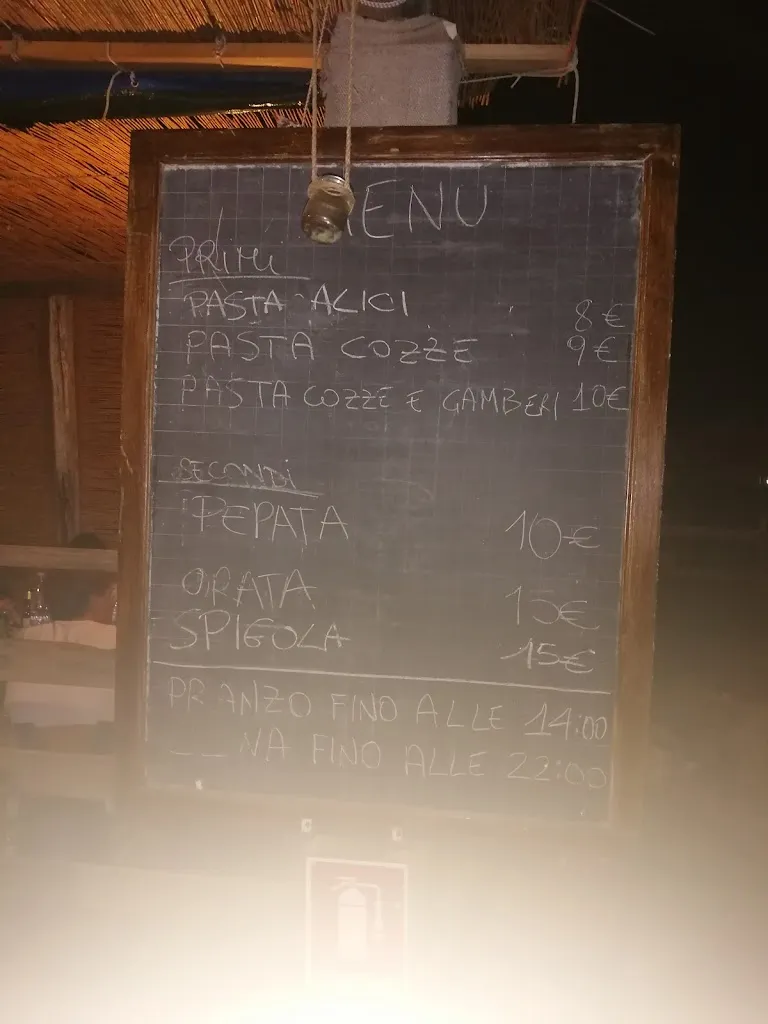 MENU
PRIMI
PASTA ALICI 8€
PASTA COZZE 9€
PASTA COZZE E GAMBERI 10€
SECONDI
PEPATA 10€
ORATA 15€
SPIGOLA 15€
PRANZO FINO ALLE 14:00
NA FINO ALLE 22:00